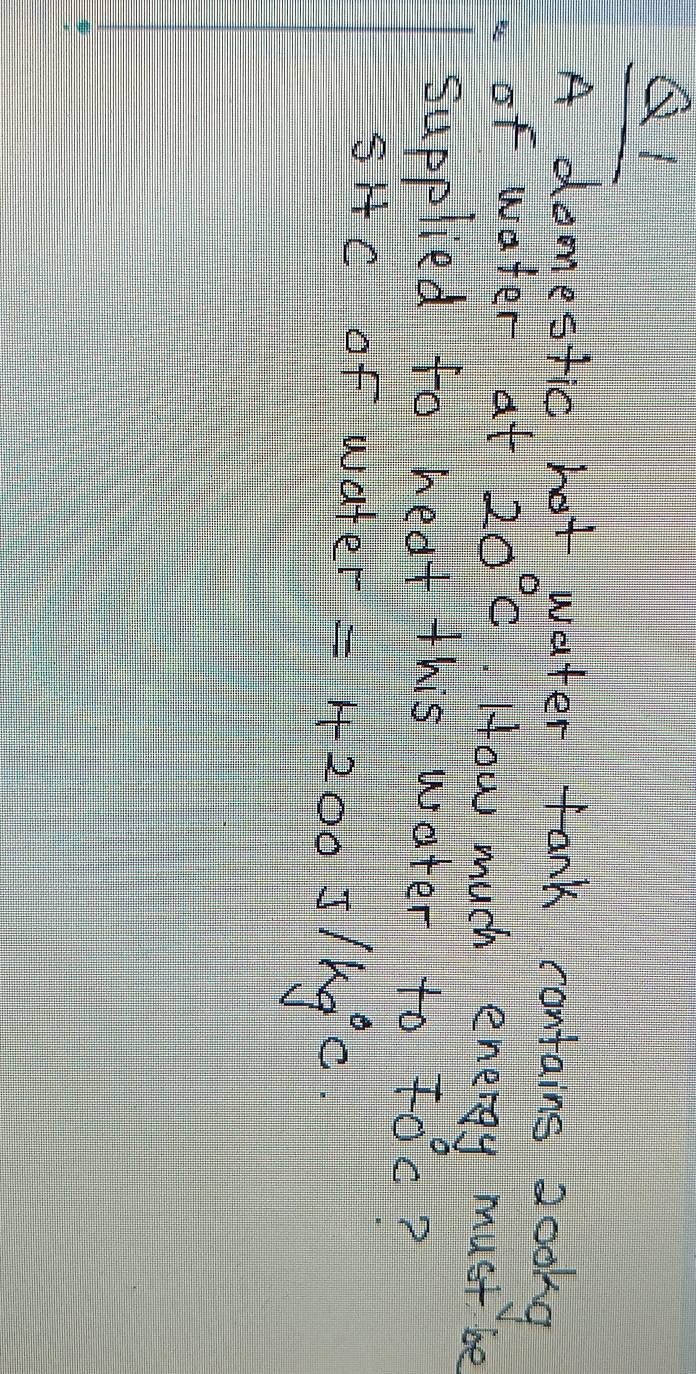 Q1
A domestic hot water tank contains 200kg
of water at 20°C. How much energy must be
Supplied to heat this water to 70°C?
SHC of water = 4200 J/kg°C.